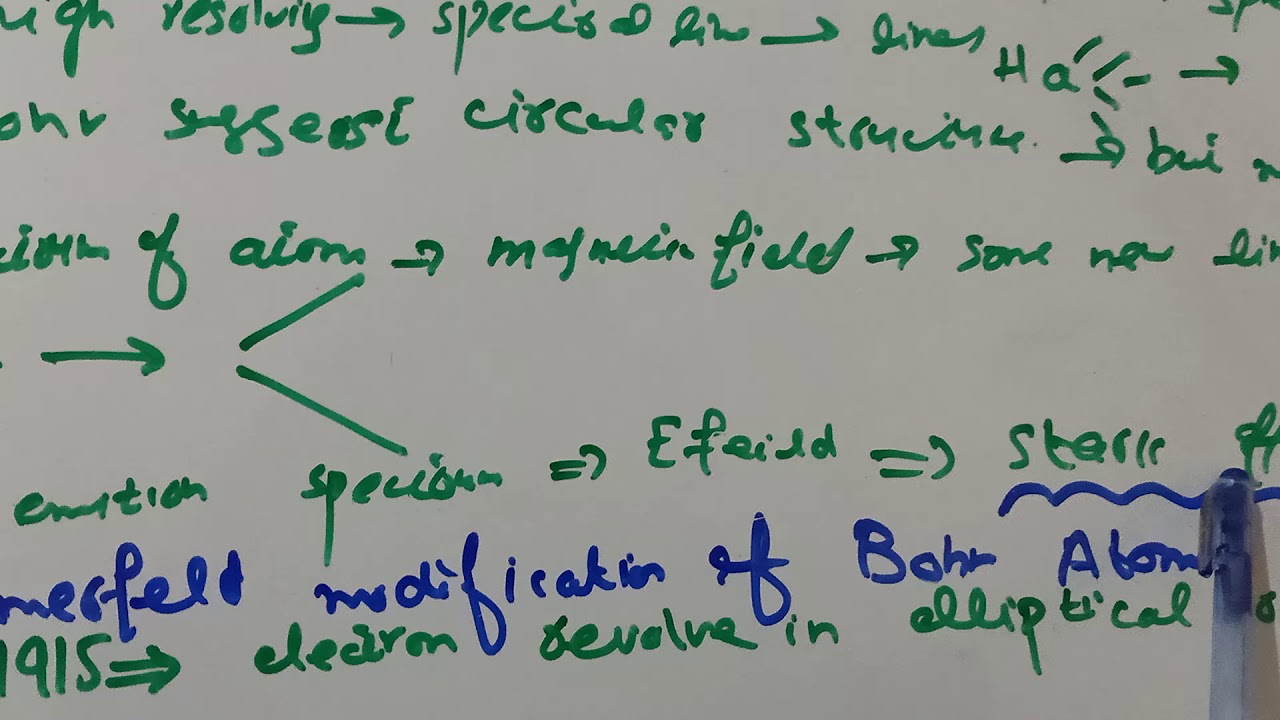 high resolving → spectral line → lines Hα →
ohr suggest circular structure. → but
ctrum of atom → magnetic field → some new lin
→
emition spectrum ⇒ E feild ⇒ Stark eff
merfeld modification of Bohr Atom
1915 ⇒ electron revolve in elliptical